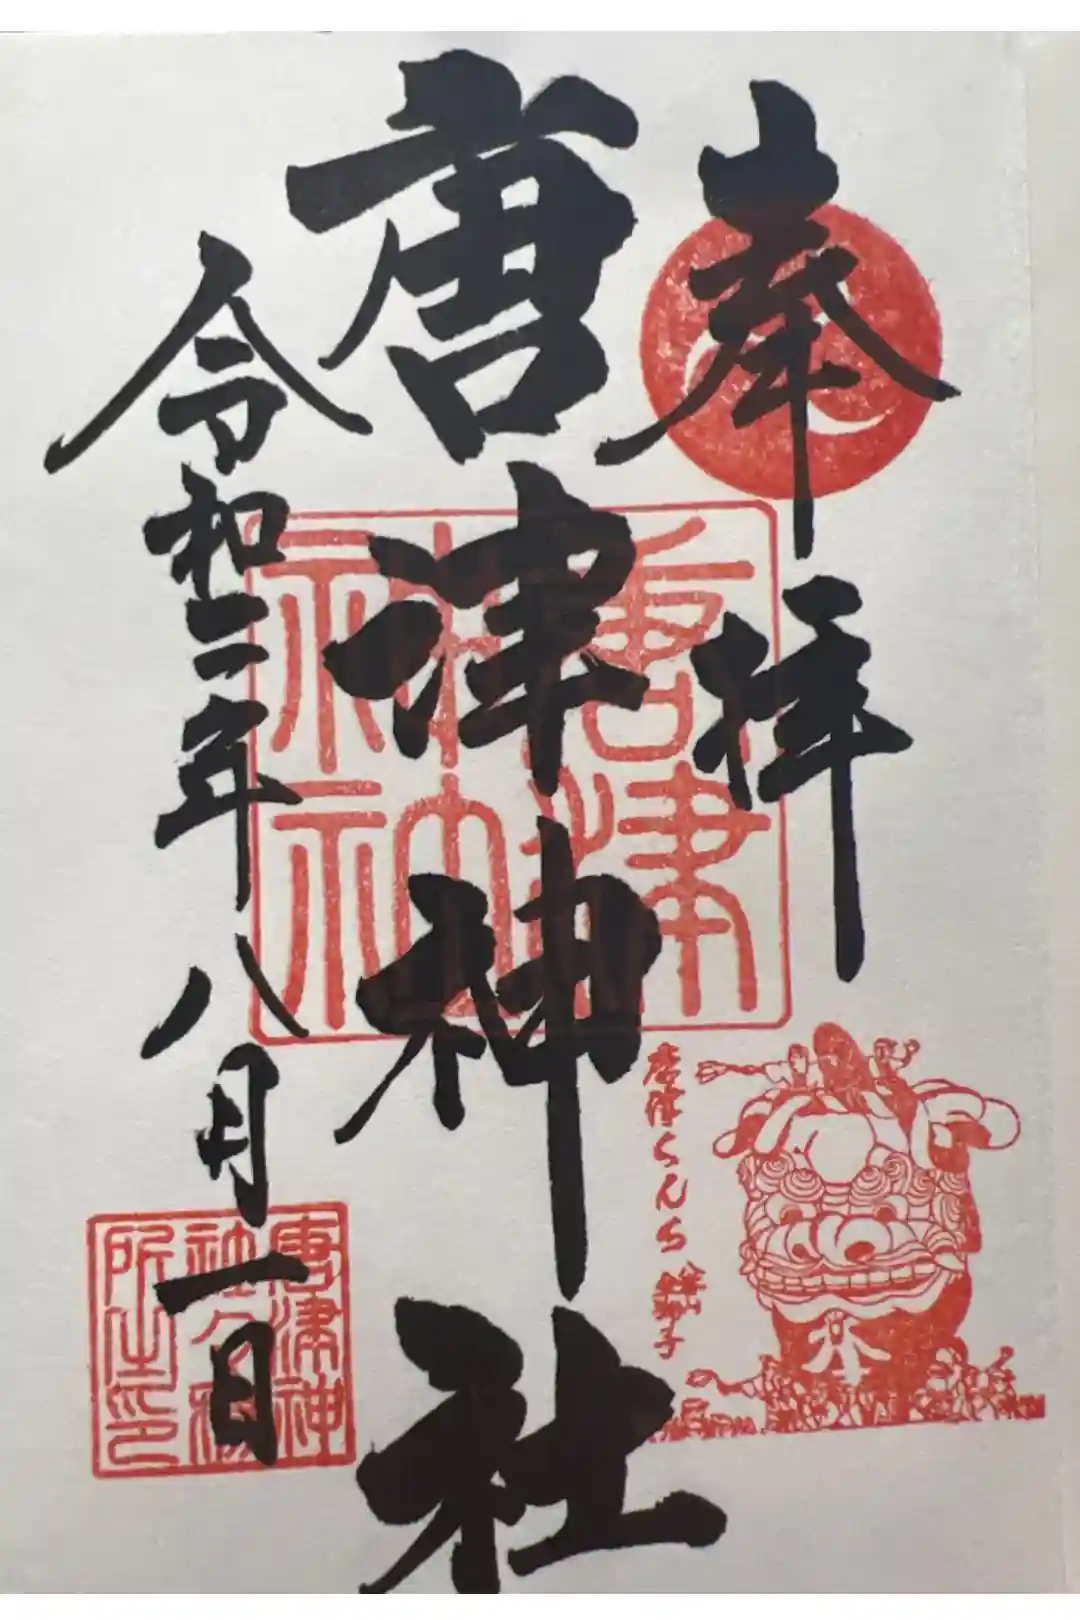 奉拝
唐津神社
令和二年八月一日
唐津神社
唐津くんち
唐津神
社々務
所之印